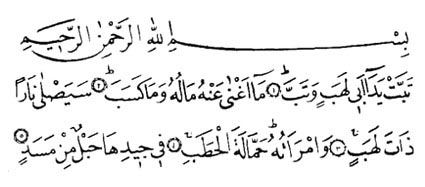 بِسْمِ اللهِ الرَّحْمٰنِ الرَّحِيمِ
تَبَّتْ يَدَٓا اَبٖي لَهَبٍ وَتَبَّۜ ﴿١﴾ مَٓا اَغْنٰى عَنْهُ مَالُهُ وَمَا كَسَبَۜ ﴿٢﴾ سَيَصْلٰى نَارًا
ذَاتَ لَهَبٍۚ ﴿٣﴾ وَامْرَاَتُهُۜ حَمَّالَةَ الْحَطَبِۚ ﴿٤﴾ فٖي جٖيدِهَا حَبْلٌ مِنْ مَسَدٍ ﴿٥﴾